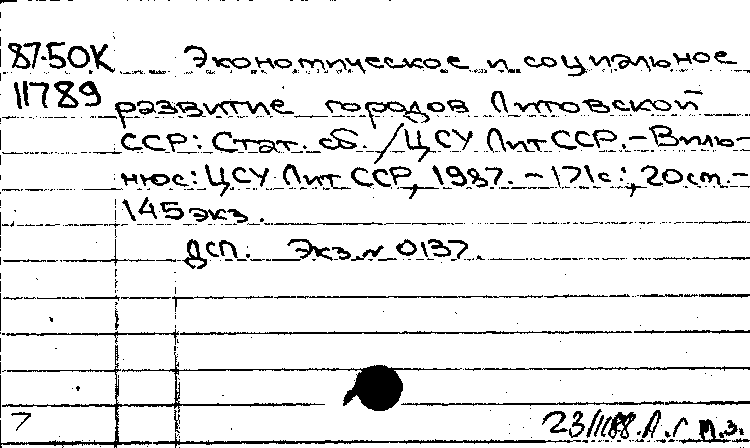 87-50К Экономическое и социальное
11789 развитие городов Литовской
ССР: Стат. сб. / ЦСУ ЛитССР. - Виль-
нюс: ЦСУ Лит ССР, 1987. - 171с.; 20см. -
145экз.
ДСП. Экз.№ 0137.
7